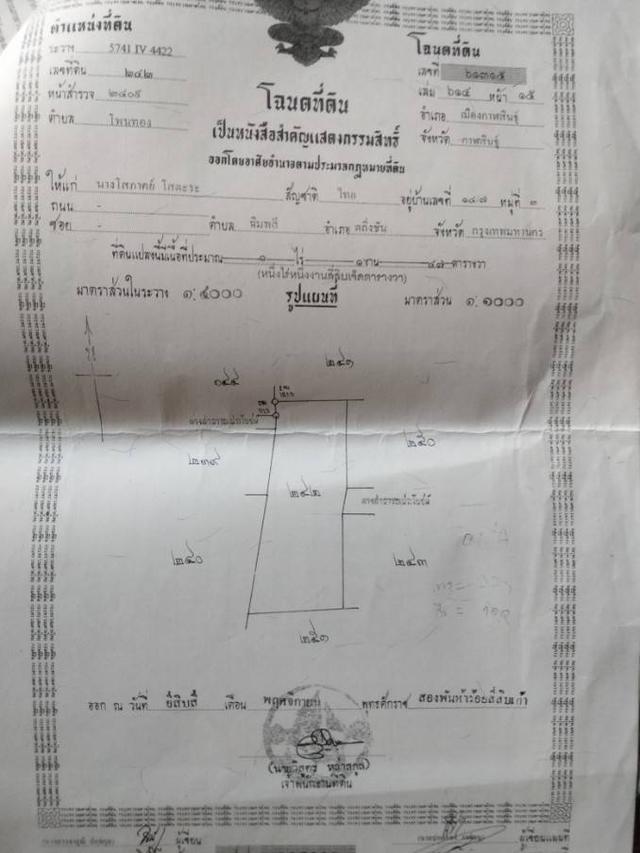 ตำแหน่งที่ดิน
ระวาง 5741 IV 4422
เลขที่ดิน ๒๔๒
หน้าสำรวจ ๒๔๐๕
ตำบล โพนทอง
โฉนดที่ดิน
เลขที่ ๖๑๓๑๕
เล่ม ๖๑๔ หน้า ๑๕
อำเภอ เมืองกาฬสินธุ์
จังหวัด กาฬสินธุ์
โฉนดที่ดิน
เป็นหนังสือสำคัญแสดงกรรมสิทธิ์
ออกโดยอาศัยอำนาจตามประมวลกฎหมายที่ดิน
ให้แก่ นางโสภาคย์ สัญชาติ ไทย อยู่บ้านเลขที่ ๑๔/๘ หมู่ที่ ๓
ถนน -
ซอย - ตำบล ฉิมพลี อำเภอ ตลิ่งชัน จังหวัด กรุงเทพมหานคร
ที่ดินแปลงนี้มีเนื้อที่ประมาณ ๑ ไร่ ๑ งาน ๔๗ ตารางวา
(หนึ่งไร่หนึ่งงานสี่สิบเจ็ดตารางวา)
มาตราส่วนในระวาง ๑:๔๐๐๐ รูปแผนที่ มาตราส่วน ๑:๑๐๐๐
๒๔๑
๑๔๔
ทางสาธารณประโยชน์
๒๕๐
๒๓๙
๒๔๒
ทางสาธารณประโยชน์
๒๔๐
๒๔๓
๒๕๑
ออก ณ วันที่ ยี่สิบสี่ เดือน พฤศจิกายน พุทธศักราช สองพันห้าร้อยสี่สิบเก้า
(นายวิสูตร หล่าสกุล)
เจ้าพนักงานที่ดิน
ผู้เขียน
ผู้เขียนแผนที่